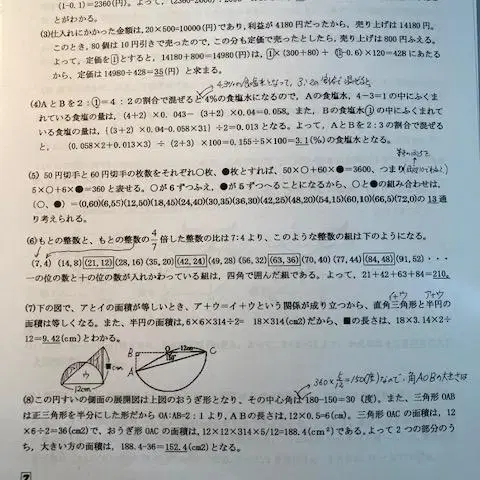 (1-0.1)=2360(円)。よって、
とがわかる。
(3)仕入れにかかった金額は、20×500=10000(円)であり、利益が 4180 円だったから、売り上げは 14180円。
このとき、80 個は 10 円引きで売ったので、この分も定価で売ったとしたら、売り上げは 800 円ふえる。
よって。定価を①とすると、14180+800=14980(円)は、①×(300+80)+
-0.6)×120=428 にあたる
から、定価は 14980÷428=35(円) と求まる。
4.3%の食塩水となって、
(4)AとBを2:①=4:2の割合で混ぜると 4%の食塩水になるので、Aの食塩水、4-3=1の中にふくま
れている食塩の量は、(4+2)×0.043-(3+2)×0.04=0.058。また、Bの食塩水①の中にふくまれて
いる食塩の量は、{(3+2)×0.04-0.058×31}÷2=0.013 となる。よって、AとBを2:3の割合で混ぜる
と、(0.058×2+0.013×3)÷(2+3)×100=0.155÷5×100=3.1(%)の食塩水となる。
(5)50円切手と60円切手の枚数をそれぞれ○枚、●枚とすれば、50×○+60×●=3600、つまり
5×○+6×●=360 と表せる。○が6ずつふえ、●が5ずつへることになるから、○と●の組み合わせは、
(○、●)=(0,60)(6,55)(12,50)(18,45)(24,40)(30,35)(36,30)(42,25)(48,20)(54,15)(60,10)(66,5)(72,0)の 13通
り考えられる。
(6)もとの整数と、もとの整数の4/7倍した整数の比は7:4より、このような整数の組は下のようになる。
(7,4) (14,8) (21,12) (28,16) (35,20) (42,24) (49,28) (56,32) (63,36) (70,40) (77,44) (84,48) (91,52)・・・
一の位の数と十の位の数が入れかわっている組は、四角で囲んだ組である。よって、21+42+63+84=210。
イ+ウ ア+ウ
(7)下の図で、アとイの面積が等しいとき、ア+ウ=イ+ウという関係が成り立つから、直角三角形と半円の
面積は等しくなる。また、半円の面積は、6×6×314÷2= 18×314(cm2)だから、■の長さは、18×3.14×2÷
12=9.42(cm)とわかる。
ウ
■cm
12cm
B
O
12cm
C
A
360×5/12=150(度)なので、角AOBの大きさは
(8)この円すいの側面の展開図は上図のおうぎ形となり、その中心角は 180-150=30 (度)。また、三角形OAB
は正三角形を半分にした形だから OA:AB=2:1より、ABの長さは、12×0.5=6(cm)。三角形OACの面積は、12
×6÷2=36(cm2)で、おうぎ形OACの面積は、12×12×314×5/12=188.4(cm²)である。よって2つの部分のう
ち、大きい方の面積は、188.4-36=152.4(cm2)となる。